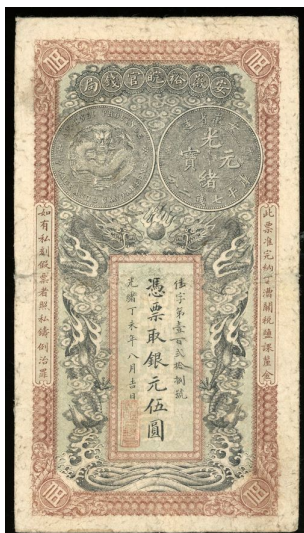 安徽裕皖官錢局
光緒元寶
此票准完納丁漕關稅鹽課釐金
如有私刻假票者照私鑄例治罪
字第壹百貳拾捌號
憑票取銀元伍圓
光緒丁未年八月吉日